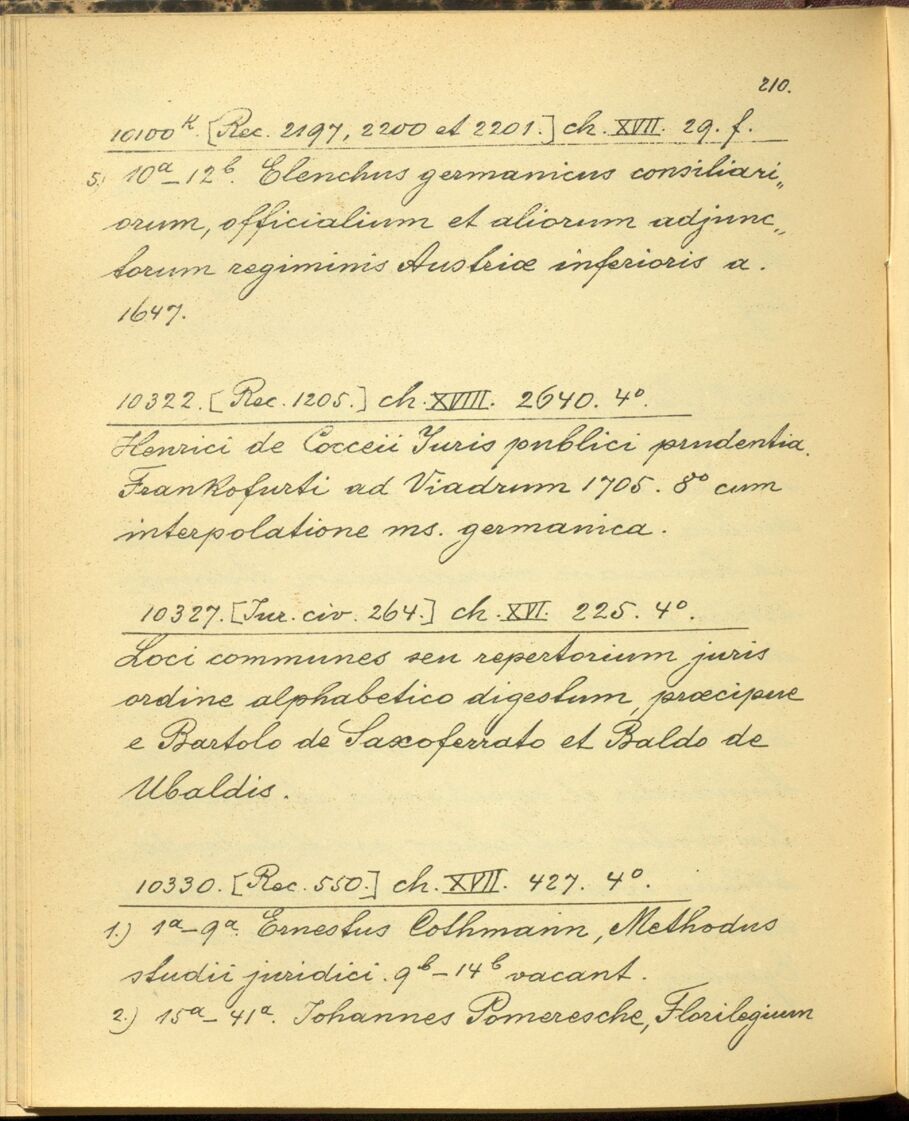 210.
10100ᴷ. [Rec. 2197, 2200 et 2201.] ch. XVII. 29. f.
5) 10ᵃ–12ᵇ. Elenchus germanicus consiliari„
orum, officialium et aliorum adjunc„
torum regiminis Austriæ inferioris a.
1647.
10322. [Rec. 1205.] ch. XVIII. 2640. 4°.
Henrici de Cocceii Juris publici prudentia.
Frankofurti ad Viadrum 1705. 8° cum
interpolatione ms. germanica.
10327. [Jur. civ. 264.] ch. XVI. 225. 4°.
Loci communes seu repertorium juris
ordine alphabetico digestum, præcipue
e Bartolo de Saxoferrato et Baldo de
Ubaldis.
10330. [Rec. 550.] ch. XVII. 427. 4°.
1.) 1ᵃ–9ᵃ. Ernestus Cothmann, Methodus
studii juridici. 9ᵇ–14ᵇ vacant.
2.) 15ᵃ–41ᵃ. Johannes Pomeresche, Florilegium